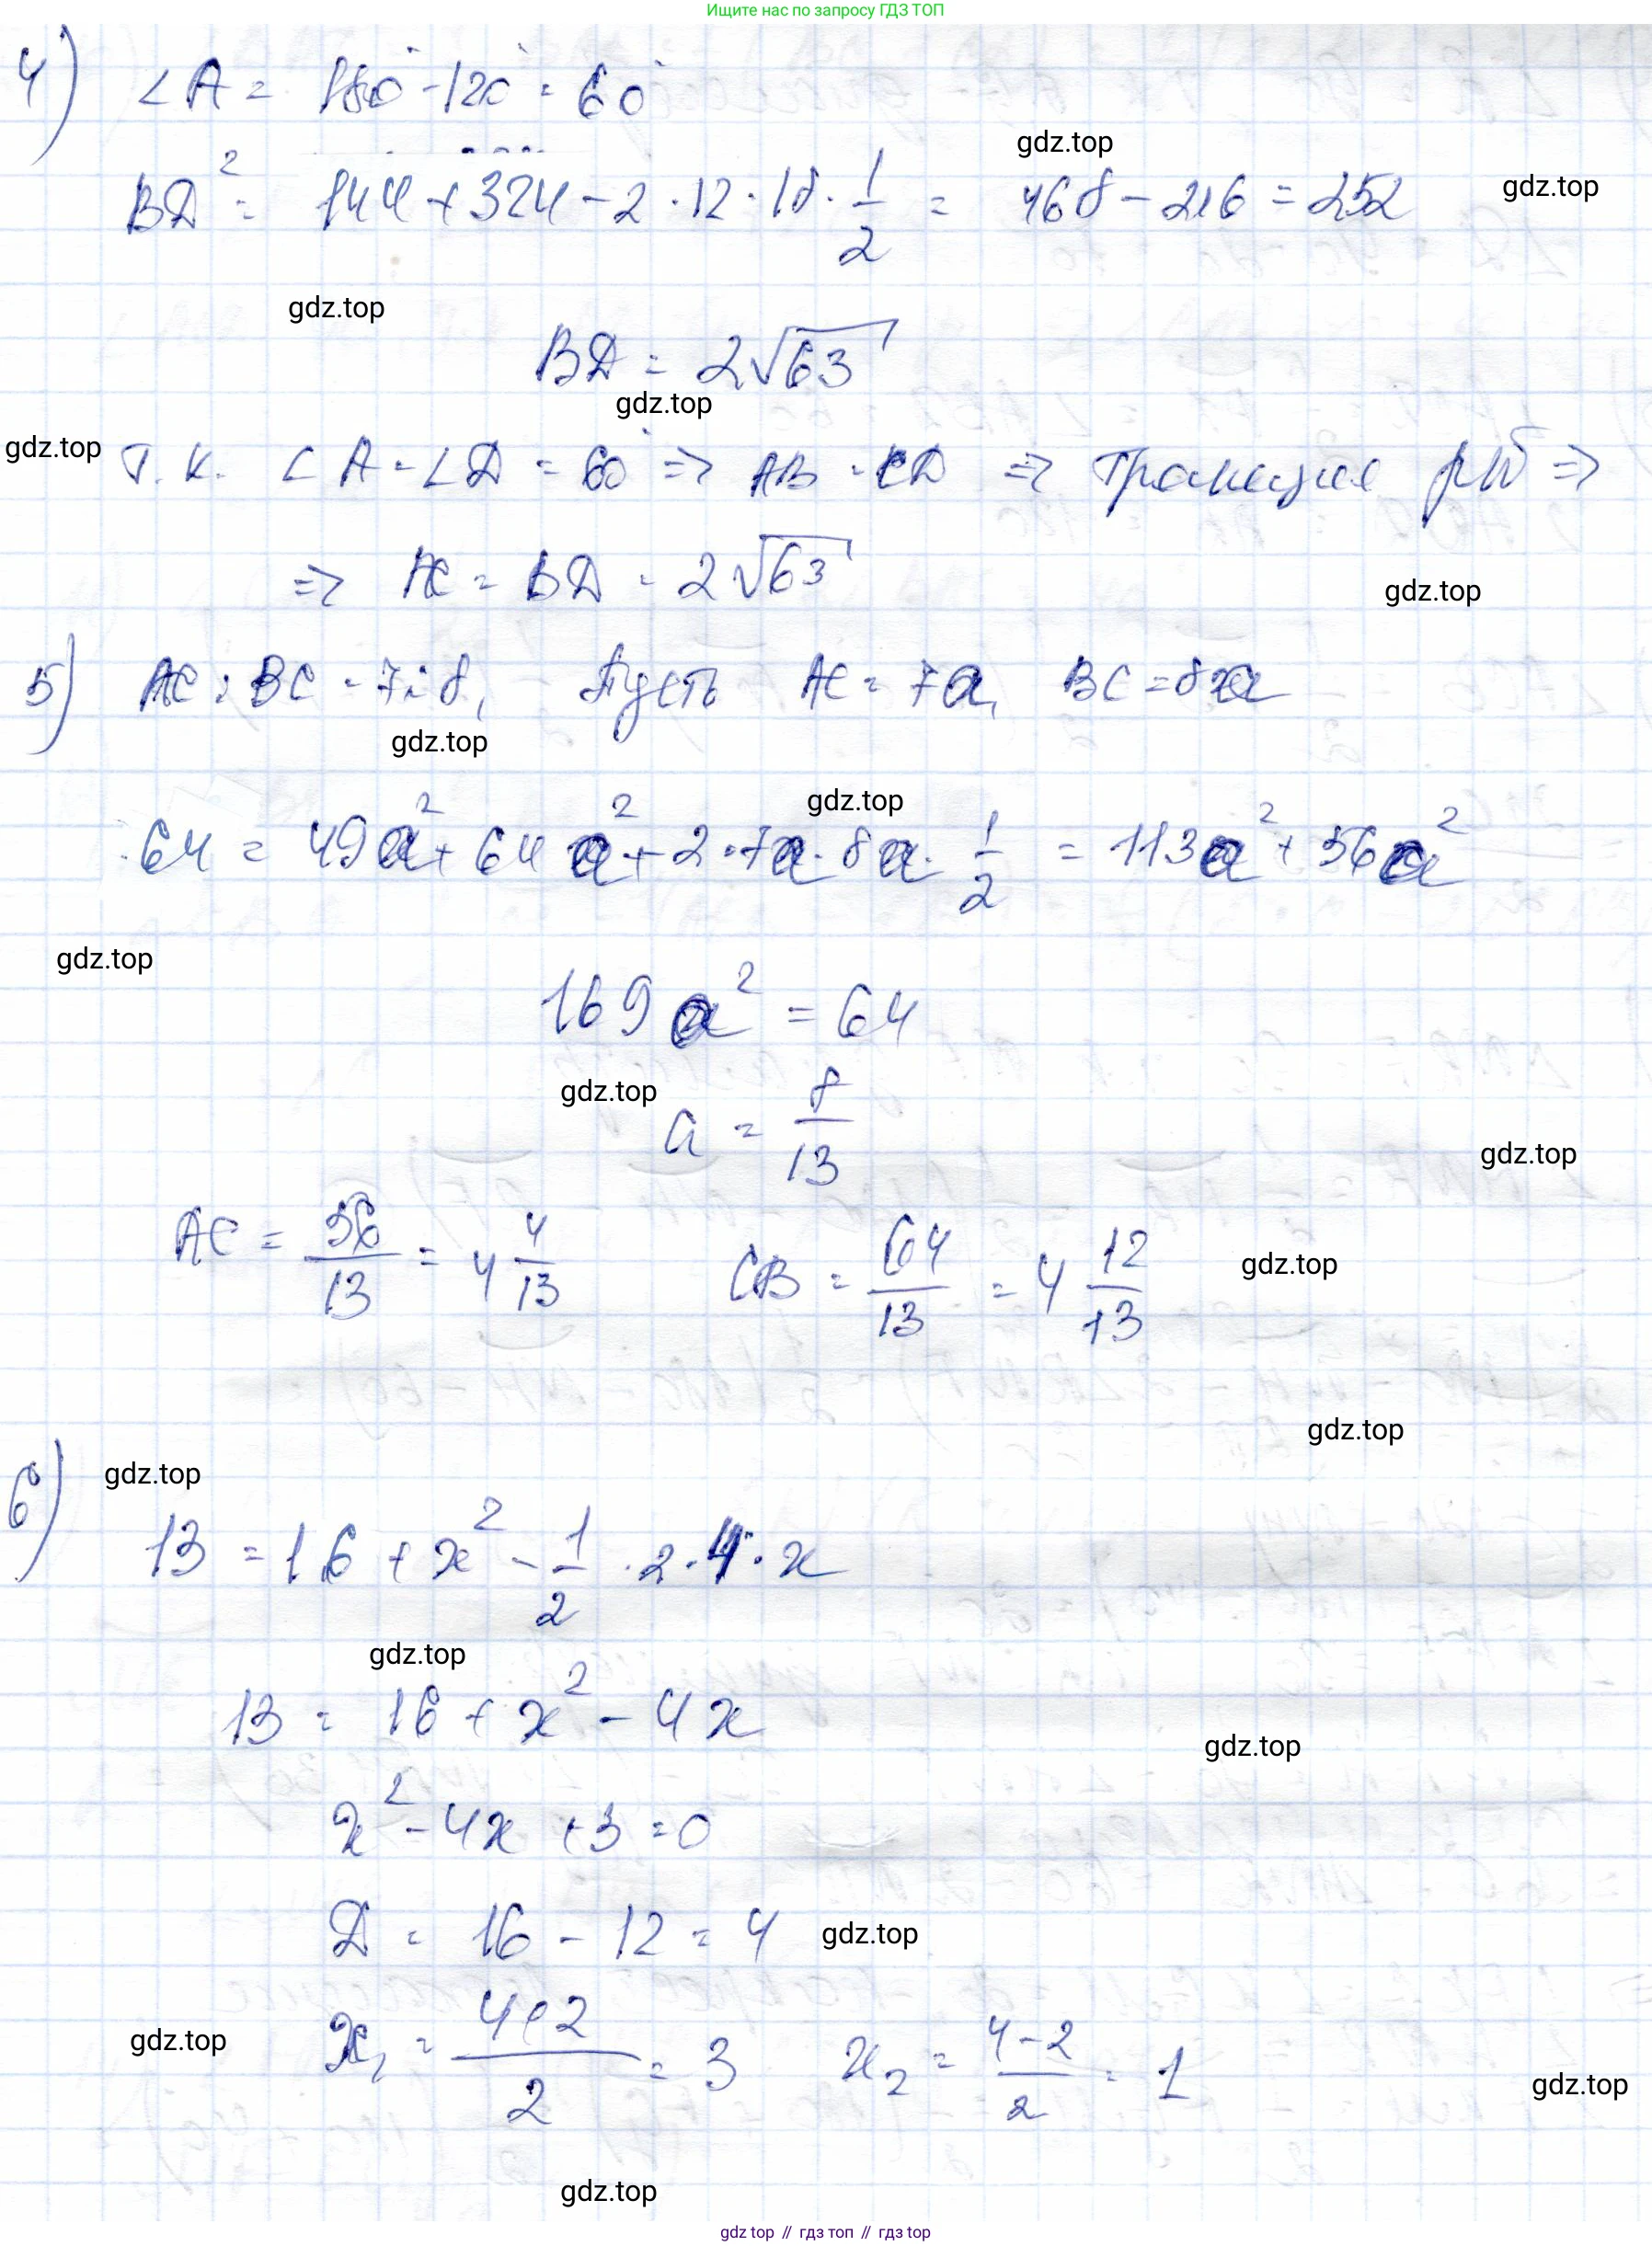 Ищите нас по запросу ГДЗ ТОП
4) ∠A = 180° - 120° = 60°
gdz.top
BD² = 144 + 324 - 2 · 12 · 18 · 1/2 = 468 - 216 = 252
gdz.top
gdz.top
BD = 2√63
gdz.top
gdz.top
т.к. ∠A = ∠D = 60° => AB = CD => трапеция р/б =>
=> AC = BD = 2√63
gdz.top
5) AC : BC = 7 : 8, Пусть AC = 7a, BC = 8a
gdz.top
gdz.top
64 = 49a² + 64a² + 2 · 7a · 8a · 1/2 = 113a² + 56a²
gdz.top
169a² = 64
gdz.top
a = 8/13
gdz.top
AC = 56/13 = 4 4/13 CB = 64/13 = 4 12/13
gdz.top
gdz.top
gdz.top
6) 13 = 16 + x² - 1/2 · 2 · 4 · x
gdz.top
13 = 16 + x² - 4x
gdz.top
x² - 4x + 3 = 0
D = 16 - 12 = 4
gdz.top
gdz.top
x₁ = (4+2)/2 = 3 x₂ = (4-2)/2 = 1
gdz.top
gdz.top
gdz top // гдз топ // гдз top